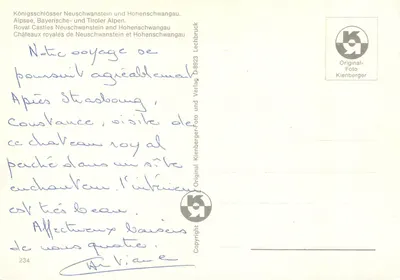 Königsschlösser Neuschwanstein und Hohenschwangau.
Alpsee, Bayerische- und Tiroler Alpen.
Royal Castles Neuschwanstein and Hohenschwangau
Châteaux royales de Neuschwanstein et Hohenschwangau
Notre voyage se
poursuit agréablement
Après Strasbourg,
Constance, visite de
ce chateau royal
perché dans un site
enchanteur. l'intérieur
est très beau.
Affectueux baisers
de nous quatre.
234
Copyright
Original Kienberger-Foto und Verlag
Lechbruck
Original-
Foto
Kienberger